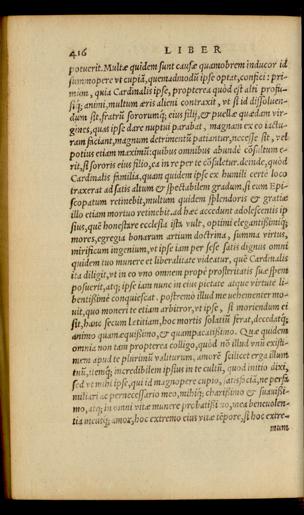 416 LIBER
potuerit. Multæ quidem sunt causæ quamobrem inducor id
summopere vt cupiā, quemadmodū ipse optat, confici: pri-
mum, quia Cardinalis ipse, propterea quòd est alti profu-
siq́; animi, multum æris alieni contraxit, vt si id dissoluen-
dum sit, fratrū sororumq́; eius filij, & puellæ quædam vir-
gines, quas ipse dare nuptui parabat, magnam ex eo iactu-
ram faciant, magnum detrimentū patiantur, necesse sit, vel
potius etiam maximū: quibus omnibus abundè cōsultum e-
rit, si sororis eius filio, ea in re per te cōsuletur. deinde, quòd
Cardinalis familia, quam quidem ipse ex humili certè loco
traxerat ad satis altum & spectabilem gradum, si eum Epi-
scopatum retinebit, multum quidem splendoris & gratiæ
illo etiam mortuo retinebit. ad hæc accedunt adolescentis ip
sius, quē honestare ecclesia ista vult, optimi elegantissimiq́;
mores, egregia bonarum artium doctrina, summa virtus,
mirificum ingenium, vt ipse iam per sese satis dignus omni
quidem tuo munere et liberalitate videatur, quē Cardinalis
ita diligit, vt in eo vno omnem propè prosteritatis suæ spem
posuerit, atq; ipse iam nunc in eius pietate atque virtute li-
bentissimè conquiescat. postremò illud me uehementer mo-
uit, quo moneri te etiam arbitror, vt ipse, si moriendum ei
sit, hanc secum letitiam, hoc mortis solatiū ferat, decedatq́;
animo quamæquissimo, & quampacatissimo. Quæ quidem
omnia non tam propterea colligo, quòd nō illud vnū existi-
mem apud te plurimū valiturum, amorē scilicet erga illum
tuū, itemq́; incredibilem ipsius in te cultū, quod initio dixi,
sed vt mihi ipse, qui id magnopere cupio, satisfaciā, ne perfa
miliari ac pernecessario meo, mihiq́; charissimo & suauissi-
mo, atq; in omni vitæ munere probatissimo, mea beneuolen-
tia meusq́; amor, hoc extremo eius vitæ tēpore, si hoc extre-
mum